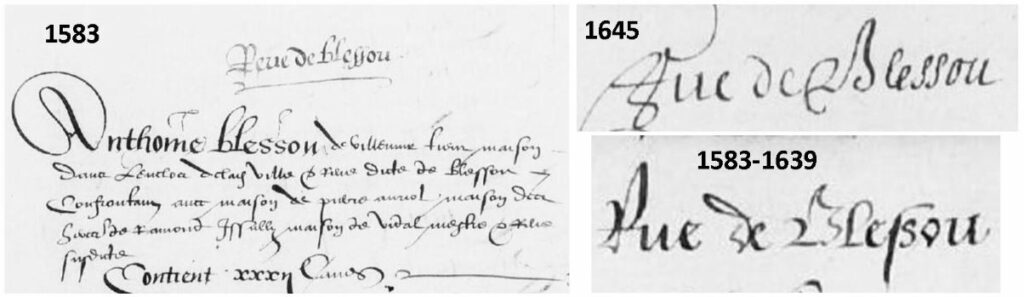 1583
Reue de blessou
Anthoine blessou de villemur tient maison
dans lenclos de lad ville & Reue dicte de blessou
Confrontant auec maison de pierre auriol maison des
de Ramond maison de vidal & Reue
susdicte
Contient xxxij Canes
1645
Rue de Blessou
1583-1639
Rue de Blessou